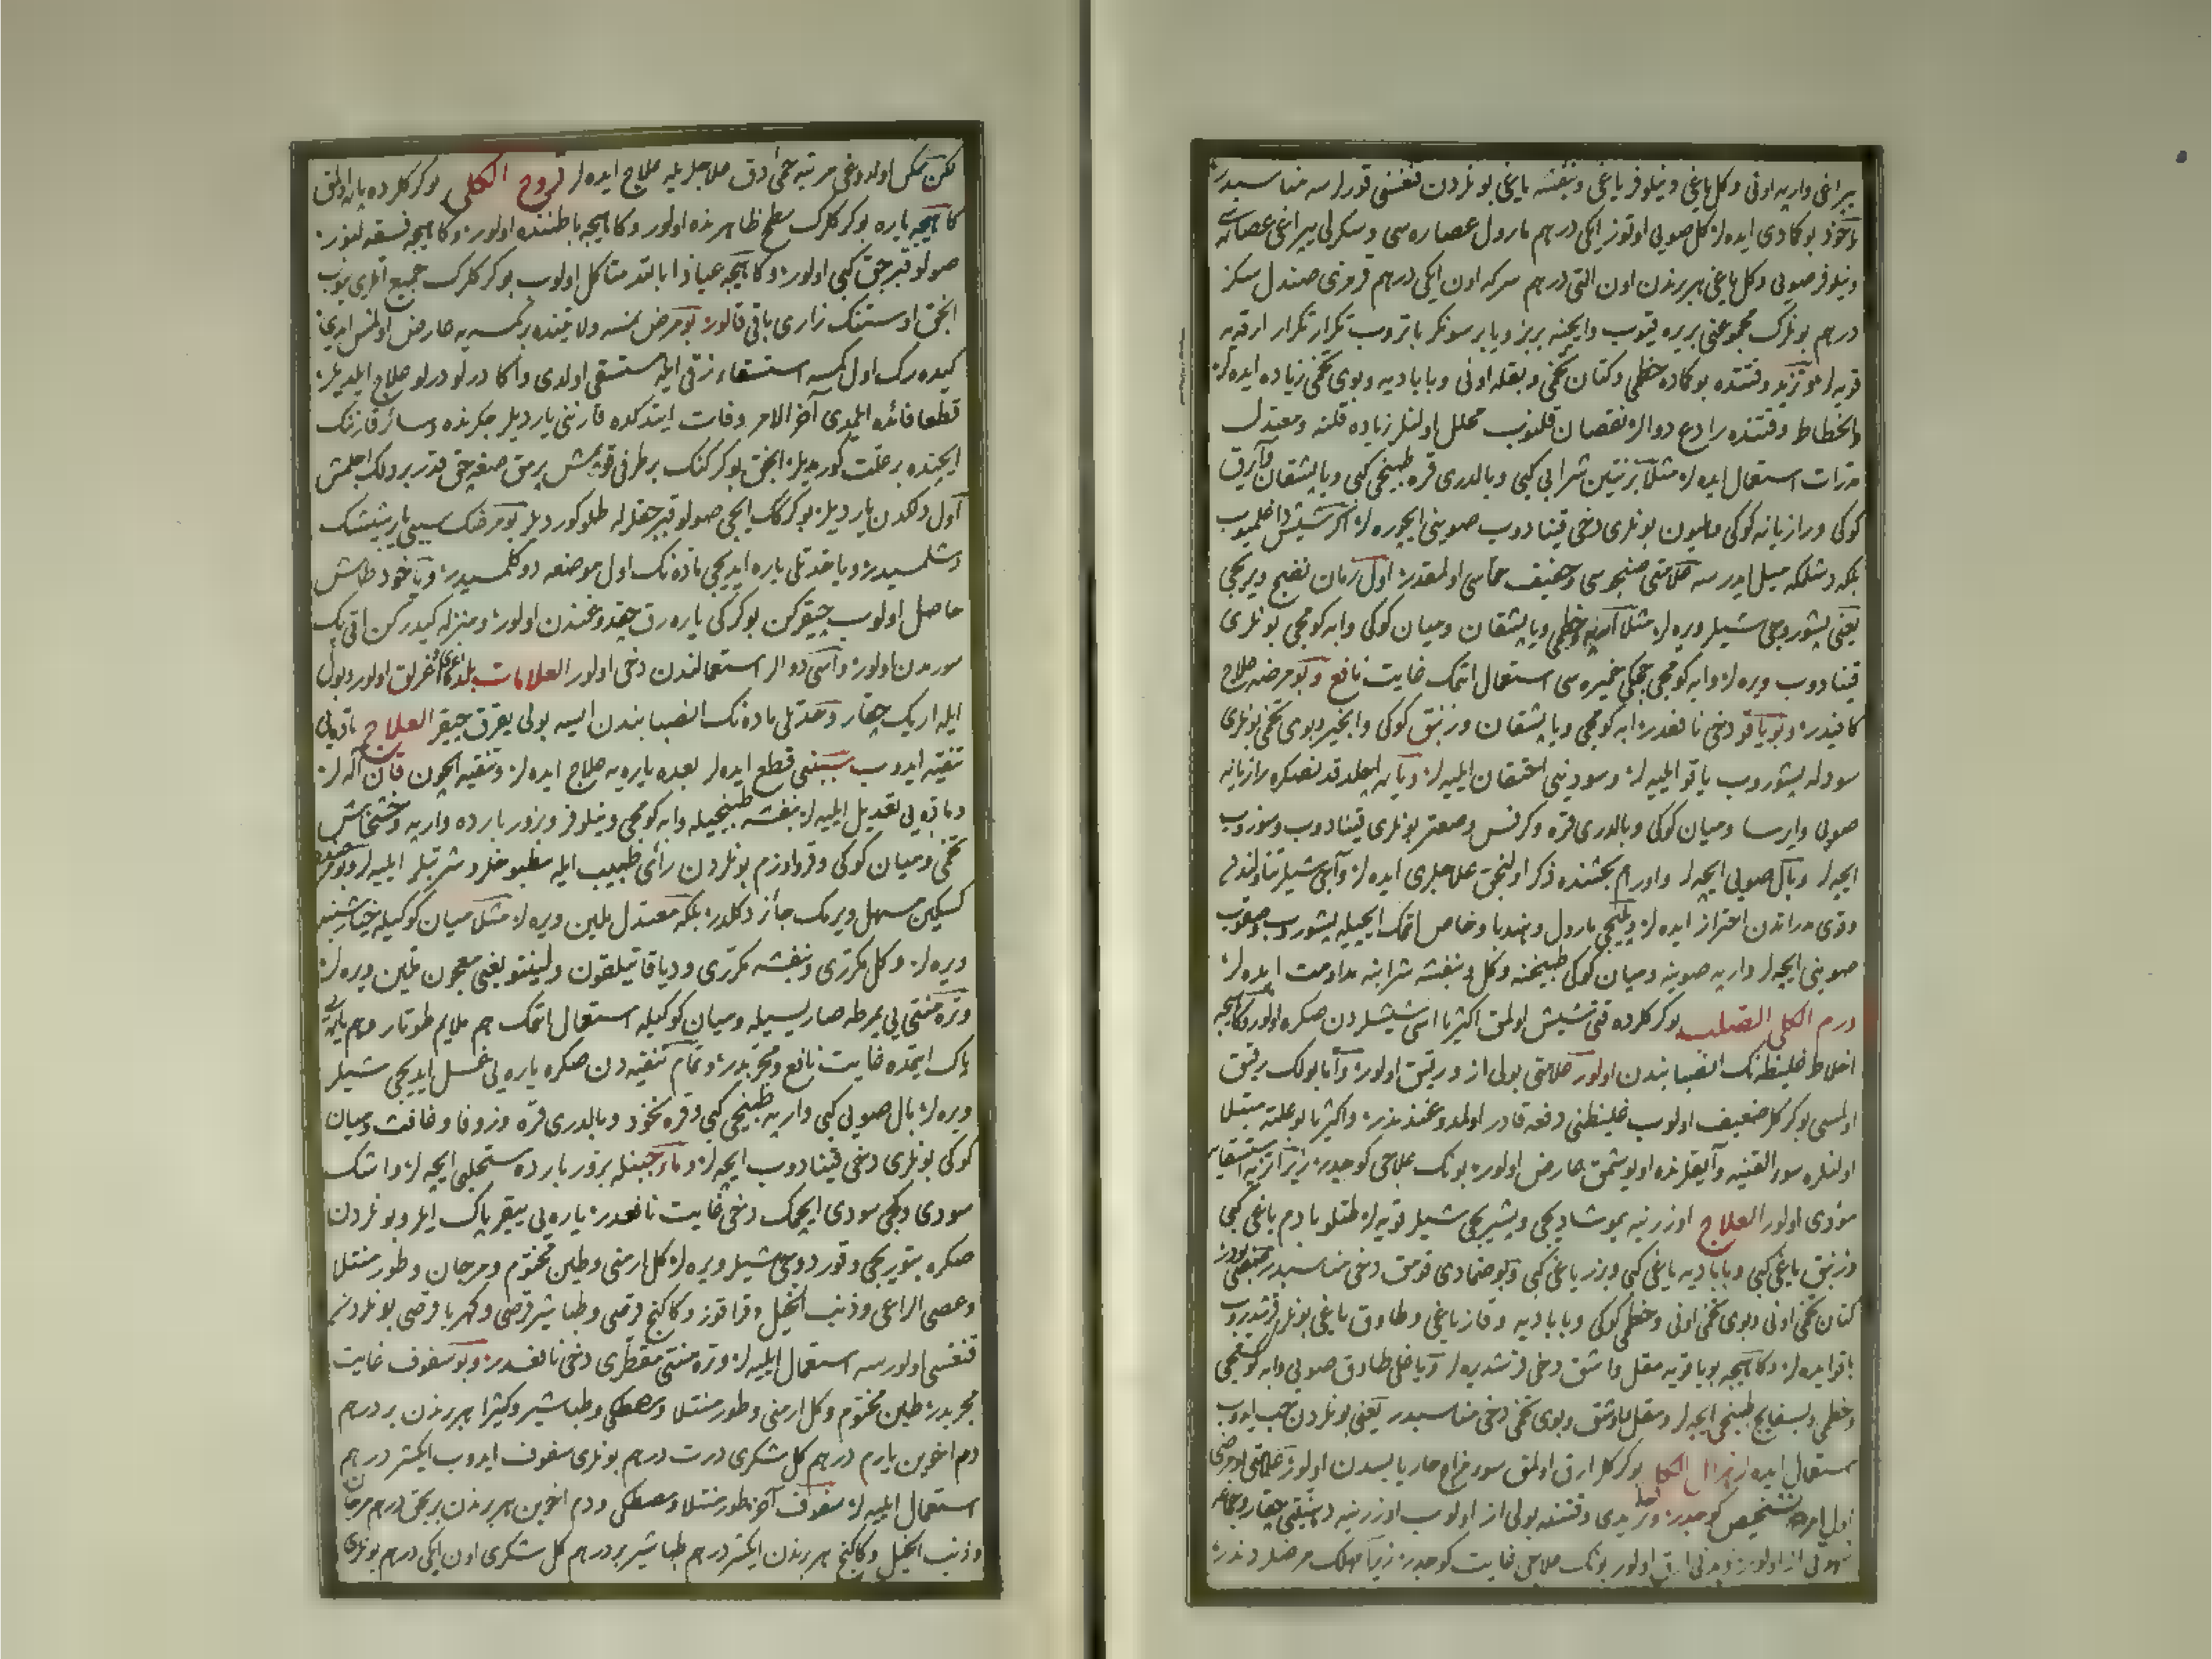 پیراغی وارپه اونی وکل یاغی ونیلوفر یاغی وبنفشه یاغی بونلردن قنغسی قورلرسه مناسبدر
یاخود بوکادی ایده لر کل صویی اوتوز ایکی درهم مارول عصاره سی وسکرلی پیراغی عصاره سی
ونیلوفر صویی وکل یاغی هر برندن اون التی درهم سرکه اون ایکی درهم قرمزی صندل سکز
درهم بونلرک مجموعنی بریره قیوب وایچنه بربز ویا برسونکر باتروب تکرار تکرار ارقه یه
قویه لر وقتنده بوکاده خطمی وکتان تخمی وبقله اونی وبابادیه وبوی تخمی زیاده ایده لر
وانحطاط وقتنده رادع دوالر نقصان قلنوب محلل اولنلر زیاده قلنه ومعتدل
مدرات استعمال ایده لر مثلا شرابی کبی وبالدری قره طبیخی کبی ویا پیشقان وآیرق
کوکی ورازیانه کوکی بونلری دخی قینادوب صوینی ایچوره لر اکر شیش داغلمیوب
بلکه دشلمکه میل ایدرسه علامتی وخفیف حماسی اولمقدر اول زمان نضج ویریجی
یعنی پشوریجی شیلر ویره لر مثلا خطمی ویا پیشقان ومیان کوکی وابه کومجی بونلری
قینادوب ویره لر وابه کومجی چچکی خمیره سی استعمال اتمک غایت نافع وبو مرضه علاج
کافیدر وبو یاقو دخی نافعدر ابه کومجی ویا پیشقان وزنبق کوکی وانجیر وبوی تخمی بونلری
سودله پشوروب یاقو ایلیه لر وسودینی احتقان ایلیه لر ویاره ایلدقدنصکره رازیانه
صویی وایرسا ومیان کوکی وبالدری قره وکرفس وصعتر بونلری قینادوب وسوزوب
ایچه لر وبال صویی ایچه لر واورام بحثنده ذکر اولنجق علاجلری ایده لر وآجی شیلر تناولندن
وقوی مدراتدن احتراز ایده لر مارول وهندبا وخاص اتمک ایچیله پشوروب
صوینی ایچه لر وارپه صوینه ومیان کوکی طبیخنه وکل وبنفشه شرابنه مداومت ایده لر
ورم الکلی الصلب بوکرکلرده قتی شیش اولمق اکثریا اسی شیشلردن صکره اولور وکاهیجه
اخلاط غلیظه نک انصبابندن اولور علامتی بولی از ورقیق اولور واما بولک رقیق
اولمسی بوکرکلر ضعیف اولوب غلیظنی دفعه قادر اولمدوغندندر واکثریا بو علته مبتلا
اولنلره سوء القنیه وآیقلرنده اویوشمق عارض اولور بونک علاجی کوجدر زیرا استسقایه
مؤدی اولور العلاج اوزرینه یموشادیجی وپشیریجی شیلر قویه لر طتلو بادم یاغی کبی
وزنبق یاغی کبی وبابادیه یاغی کبی وبزر یاغی کبی وبو ضمادی قومق دخی مناسبدر
کتان تخمی اونی وبوی تخمی اونی وخطمی کوکی وبابادیه وقاز یاغی وطاوق یاغی بونلری قرشدروب
یاقو ایده لر وکاهیجه بو یاقویه مقل واشق دخی قرشدیره لر طاوق صویی وابه کومجی
وخطمی وبسفایج طبیخی ایچه لر ومقل واشق وبوی تخمی دخی مناسبدر یعنی بونلردن حب ایدوب
استعمال ایده لر هزال الکلی بوکرکلر ارق اولمق سوء مزاج حار یابسدن اولور علامتی
اول امرده تشخیص کوجدر وقتنده بولی از اولوب اوزرینه
شهوتی از اولور وبدنی ارق اولور بونک علاجی غایت کوجدر زیرا مهلک مرضلردندر
لکن ممکن اولدوغی مرتبه حمی دق علاجلریله علاج ایده لر قروح الکلی بوکرکلرده یاره اولمق
کاهیجه یاره بوکرکلرک سطح ظاهرنده اولور وکاهیجه باطننده اولور وکاهیجه
صولو قبرجق کبی اولور وکاهیجه عیاذا بالله متأکل اولوب بوکرکلرک جمیع اتلری یوب
انجق اوستنک زاری باقی قالور بو مرض نمسه ولایتنده برکمسه یه عارض اولمش ایدی
کیده رک اول کمسه استسقاء زقی ایله مستسقی اولدی واکا درلو درلو علاج ایلدیلر
قطعا فائده ایلمدی آخر الامر وفات ایتدکده قارننی یاردیلر جکرنده وسائر قارننک
ایچنده بر علت کورمدیلر انجق بوکرکنک بر طرفی برمق صغه جق قدر بر دلک اچلمش
اول دلکدن یاردیلر بوکرکک ایچی صولو قبرجقلرله طلو کوردیلر بو مرضک سببی یا برشیشک
دشلمسیدر ویا حدتلی یاره ایدیجی ماده نک اول موضعه دوکلمسیدر ویاخود طاش
حاصل اولوب چیقرکن بوکرکی یاره رق چقدوغندن اولور ومنزله کیدرکن اتی یک
سورمدن اولور واسی دوالر استعمالندن دخی اولور العلامات اغریلق اولور وبول
ایله ارک چقار وحدتلی ماده نک انصبابندن ایسه بولی یقرق چیقر العلاج
تنقیه ایدوب سببنی قطع ایده لر بعده یاره یه علاج ایده لر وتنقیه ایچون قان آله لر
وماده یی تعدیل ایلیه لر بنفشه طبیخیله وابه کومجی ونیلوفر وبزور بارده وارپه وخشخاش
تخمی ومیان کوکی وقرو اوزم بونلردن رأی طبیب ایله مطبوخلر وشربتلر ایلیه لر
کسکین مسهل ویرمک جائز دکلدر بلکه معتدل ملین ویره لر مثلا میان کوکیله خیارشنبه
ویره لر وکل مکرری وبنفشه مکرری ودیاقاتیلقون ولینتو یعنی معجون ملین ویره لر
وتره منتی یی یمرطه صاریسیله ومیان کوکیله استعمال اتمک هم ملایم طوتار وهم یاره یی
پاک ایتمده غایت نافع ومجربدر وتمام تنقیه دن صکره یاره یی غسل ایدیجی شیلر
ویره لر بال صویی کبی وارپه طبیخی کبی وقره نخود وبالدری قره وزوفا وغافث ومیان
کوکی بونلری دخی قینادوب ایچه لر وماء جبنله بزور بارده مستحلبی ایچه لر واشک
سودی وکچی سودی ایچمک دخی غایت نافعدر یاره یی ییقر پاک ایلر وبونلردن
صکره بتوریجی وقوردوجی شیلر ویره لر کل ارمنی وطین مختوم ومرجان وطورمنتلا
وعصی الراعی وذنب الخیل وقراقوز وکاکنج قرصی وطباشیر قرصی وکهربا قرصی بونلردن
قنغسی اولورسه استعمال ایلیه لر وتره منتی مقطری دخی نافعدر وبو سفوف غایت
مجربدر طین مختوم وکل ارمنی وطورمنتلا ومصطکی وطباشیر وکثیرا هر برندن بر درهم
دم اخوین یارم درهم کل شکری درت درهم بونلری سفوف ایدوب ایکیشر درهم
استعمال ایلیه لر سفوف آخر طورمنتلا ومصطکی ودم اخوین هر برندن بر بچق درهم مرجان
وذنب الخیل وکاکنج هر برندن ایکیشر درهم طباشیر بر درهم کل شکری اون ایکی درهم بونلری